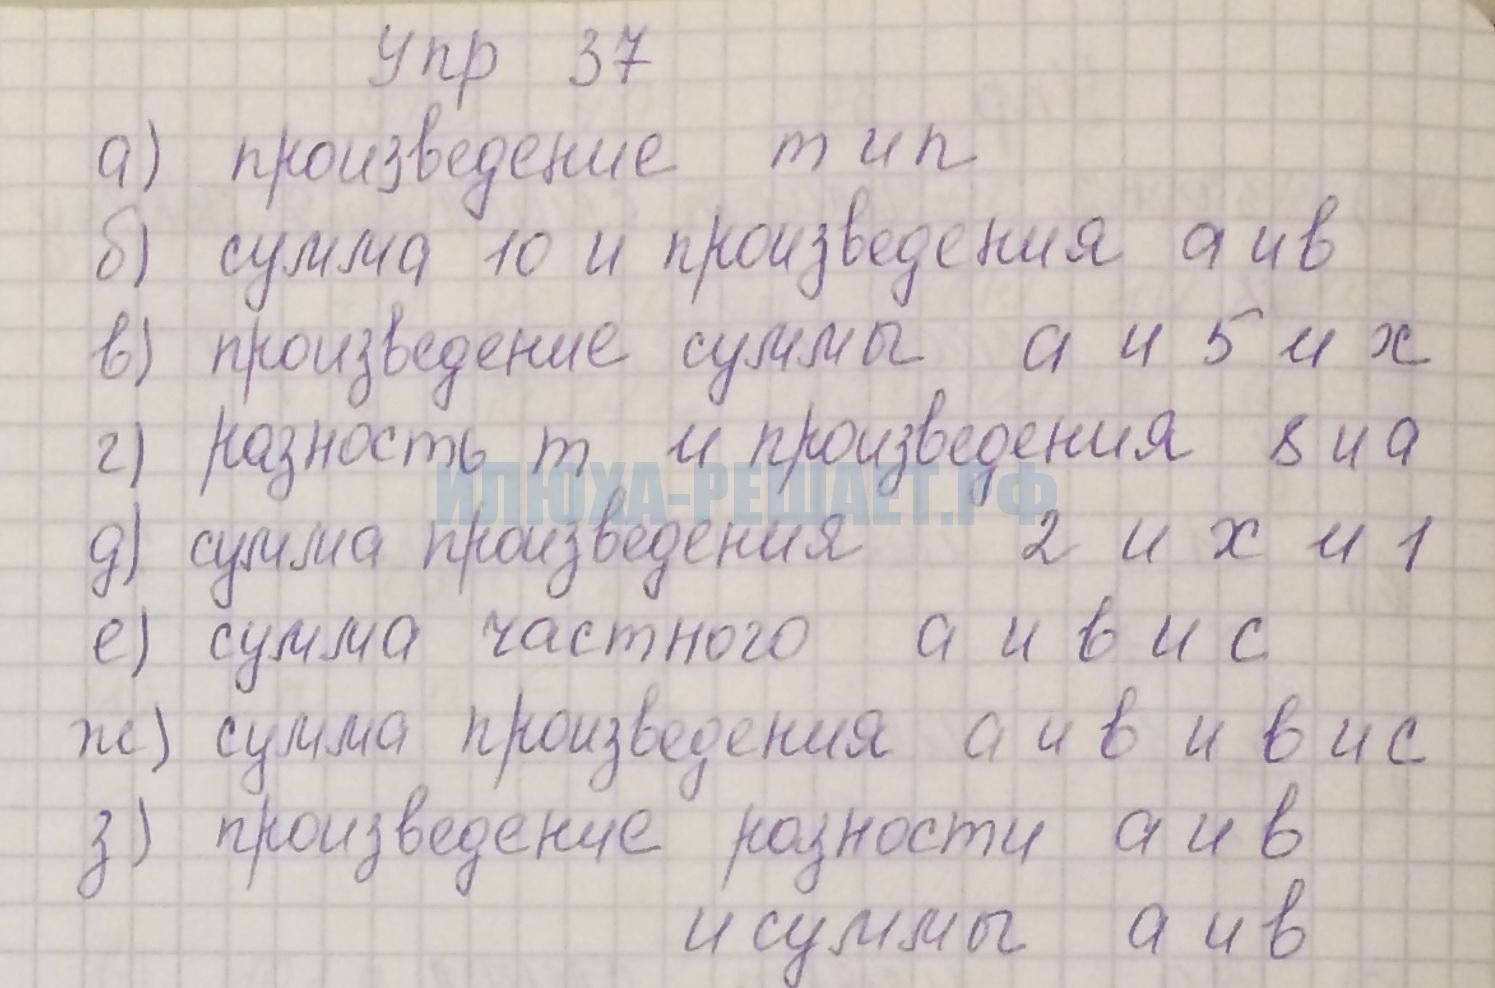 Упр 37
а) произведение m и n
б) сумма 10 и произведения а и в
в) произведение суммы а и 5 и х
г) разность m и произведения 8 и а
ИЛЮХА-РЕШАЕТ.РФ
д) сумма произведения 2 и х и 1
е) сумма частного а и в и с
ж) сумма произведения а и в и в и с
з) произведение разности а и в
и суммы а и в